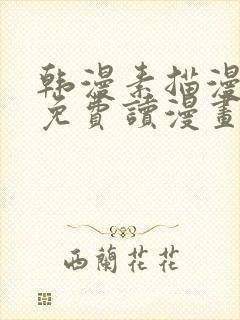 韩漫素描漫
免費讀漫畫
西蘭花花